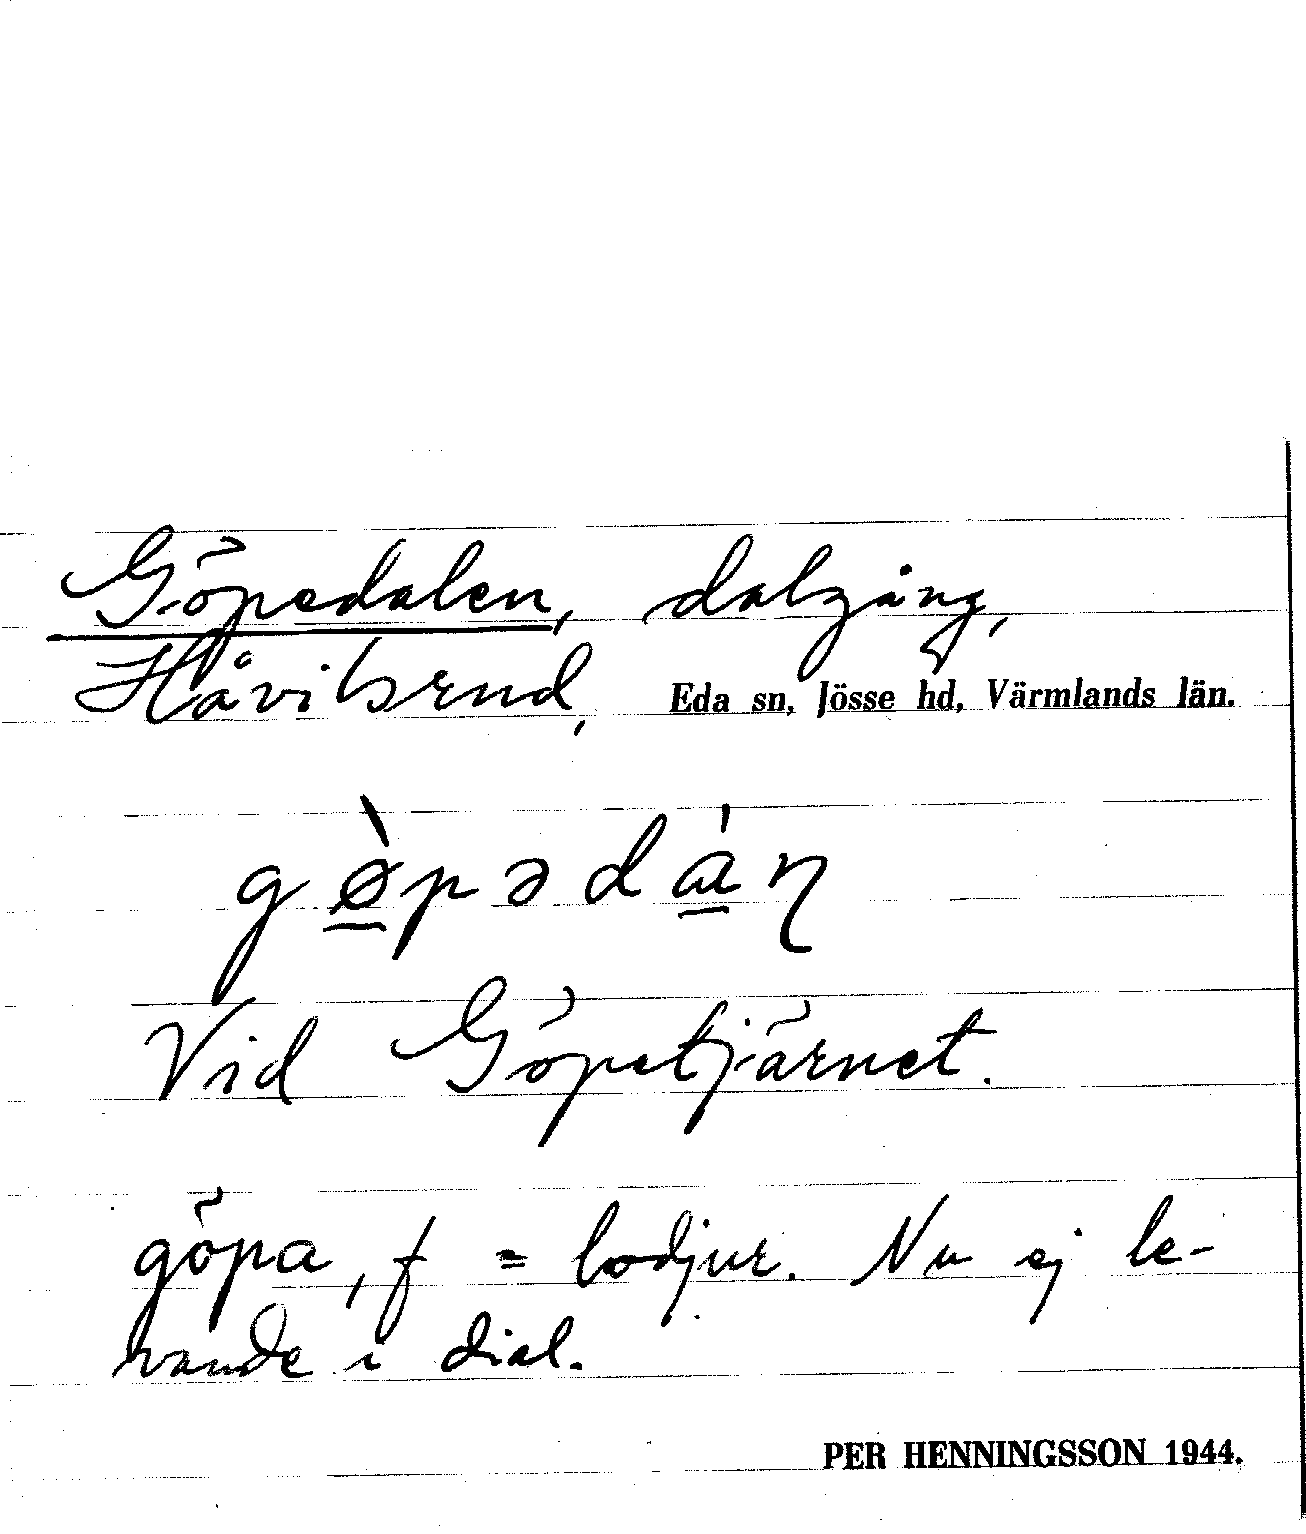 Göpedalen, dalgång,
Håvilsrud, Eda sn, Jösse hd, Värmlands län.
gø̀pədàɳ
Vid Göpetjärnet.
göpa, f = lodjur. Nu ej le-
vande i dial.
PER HENNINGSSON 1944.